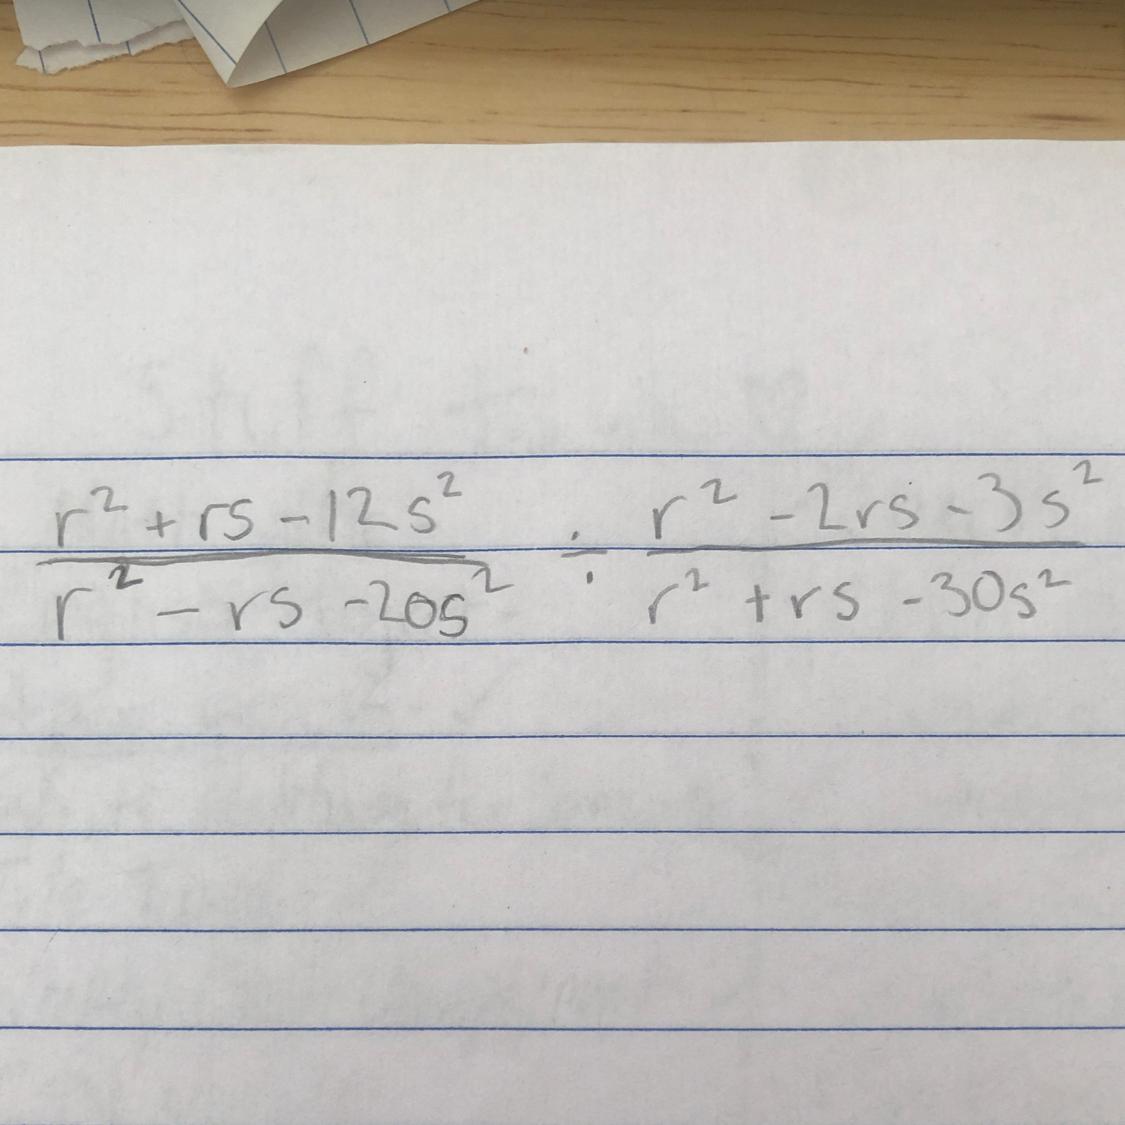 r² + rs - 12s² / r² - rs - 20s² ÷ r² - 2rs - 3s² / r² + rs - 30s²